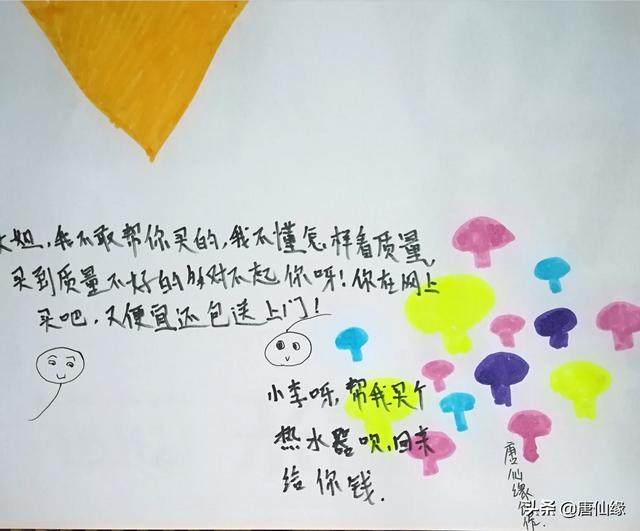 大姐,我不敢帮你买的,我不懂怎样看质量,
买到质量不好的多对不起你呀!你在网上
买吧,又便宜还包送上门!
小李呀,帮我买个
热水器吹,回来
给你钱.
唐仙缘作.
头条 @唐仙缘